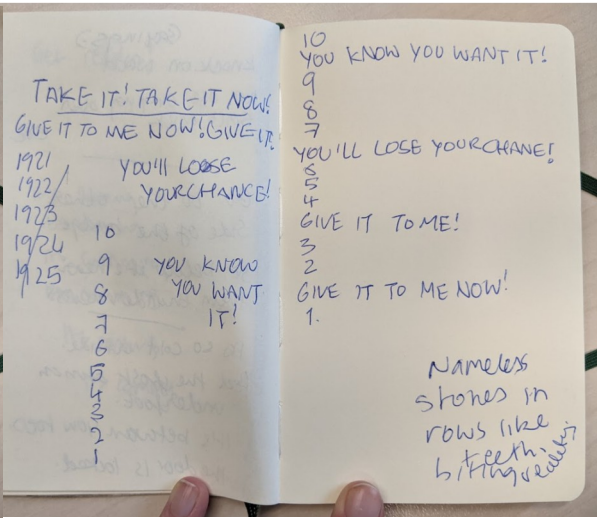 TAKE IT! TAKE IT NOW!
GIVE IT TO ME NOW! GIVE IT!
1921
1922
1923
1924
1925
YOU'LL LOOSE
YOUR CHANCE!
10
9
8
7
6
5
4
3
2
1
YOU KNOW
YOU WANT
IT!
10
YOU KNOW YOU WANT IT!
9
8
7
YOU'LL LOSE YOUR CHANE!
6
5
4
GIVE IT TO ME!
3
2
GIVE IT TO ME NOW!
1.
Nameless
stones in
rows like
teeth.
biting reality